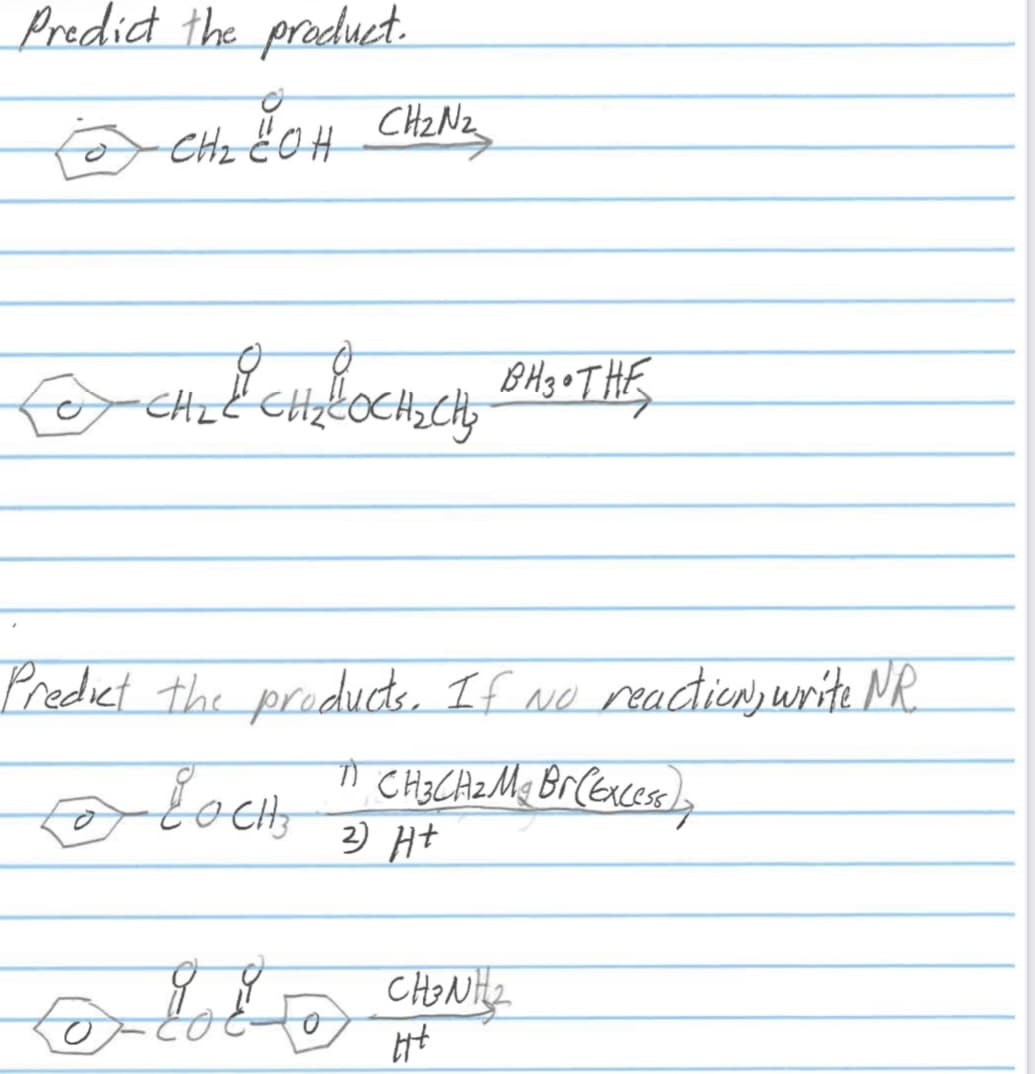 Predict the product.
O
CH2 COH CH2N2
O O
CH2C CH2COCH2CH3 BH3•THF
Predict the products. If no reaction, write NR
O
COCH3 1) CH3CH2MgBr(Excess)
2) H+
O O
COC CH3NH2
H+